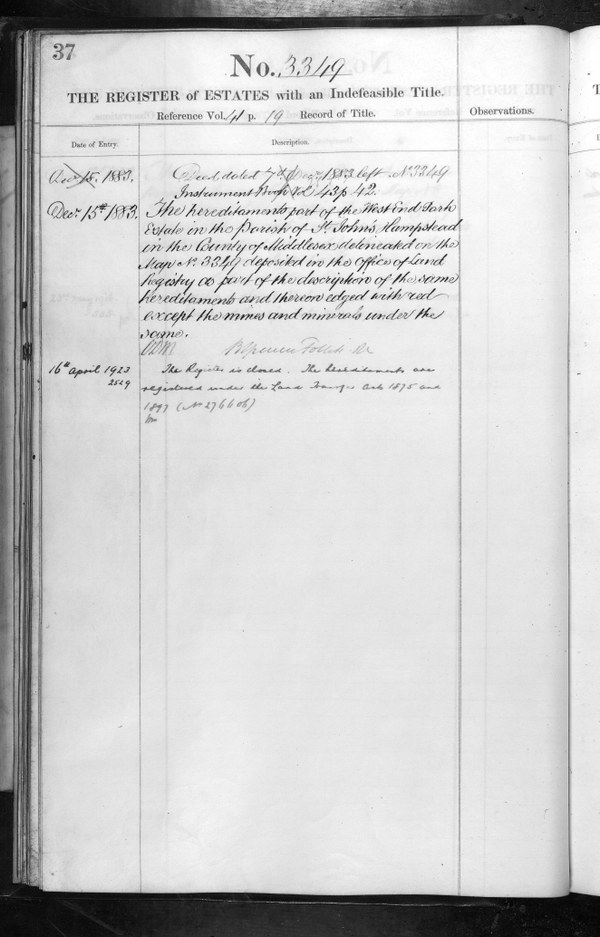 37
No. 3349
THE REGISTER of ESTATES with an Indefeasible Title.
Reference Vol. 41 p. 19 Record of Title.
Observations.
Date of Entry.
Description.
15, 1883. Deed dated 7th Decr. 1883 left No 3349
Instrument Book Vol 43 p 42.
Decr. 15th 1883. The hereditaments part of the West End Park
Estate in the Parish of St. John's, Hampstead
in the County of Middlesex delineated on the
Map No. 3349 deposited in the Office of Land
Registry as part of the description of the same
hereditaments and thereon edged with red
except the mines and minerals under the
same.
R Spencer Follett
16th April 1923 The Register is closed. The hereditaments are
2529 registered under the Land Transfer Acts 1875 and
1897 (No 276606)